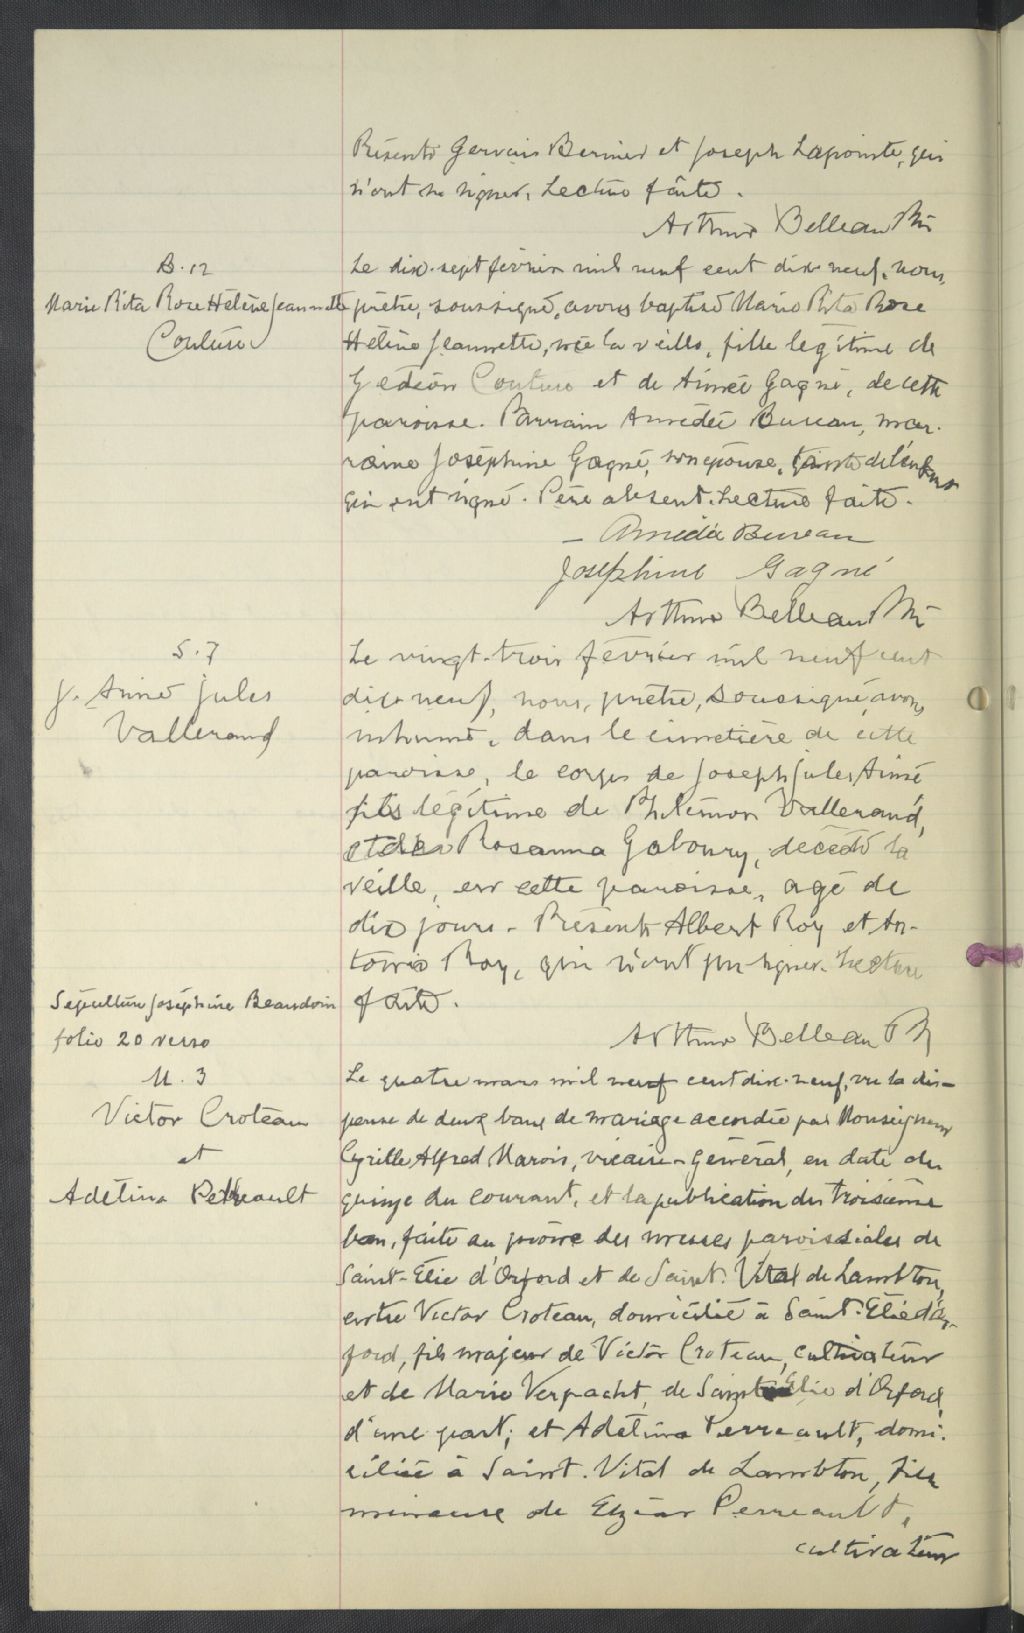 Présents Gervais Bernier et Joseph Lapointe, qui
n'ont su signer. Lecture faite.
Arthur Belleau Ptr
B. 12
Marie Rita Rose Hélène Jeannette
Couture
Le dix-sept février mil neuf cent dix-neuf, nous,
prêtre, soussigné, avons baptisé Marie Rita Rose
Hélène Jeannette, née la veille, fille légitime de
Gédéon Couture et de Aimée Gagné, de cette
paroisse. Parrain Amédée Bureau, mar-
raine Joséphine Gagné, son épouse, tante de l'enfant
qui ont signé. Père absent. Lecture faite.
Amédée Bureau
Joséphine Gagné
Arthur Belleau Ptr
S. 7
J. Aimé Jules
Vallerand
Le vingt-trois février mil neuf cent
dix-neuf, nous, prêtre, soussigné, avons
inhumé, dans le cimetière de cette
paroisse, le corps de Joseph Jules Aimé
fils légitime de Philémon Vallerand,
et de Rosanna Gaboury, décédé la
veille, en cette paroisse, agé de
dix jours. Présents Albert Roy et An-
tonio Roy, qui n'ont pu signer. Lecture
faite.
Arthur Belleau Ptr
Sépulture Joséphine Beaudoin
folio 20 verso
M. 3
Victor Croteau
et
Adélina Perreault
Le quatre mars mil neuf cent dix-neuf, vu la dis-
pense de deux bans de mariage accordée par Monseigneur
Cyrille Alfred Marois, vicaire-général, en date du
quinze du courant, et la publication du troisième
ban, faite au prône des messes paroissiales de
Saint-Elie d'Orford et de Saint-Vital de Lambton,
entre Victor Croteau, domicilié à Saint-Elie d'Or-
ford, fils majeur de Victor Croteau, cultivateur
et de Marie Verpacht, de Saint Elie d'Orford,
d'une part; et Adélina Perreault, domi-
ciliée à Saint-Vital de Lambton, fille
mineure de Elzéar Perreault,
cultivateur